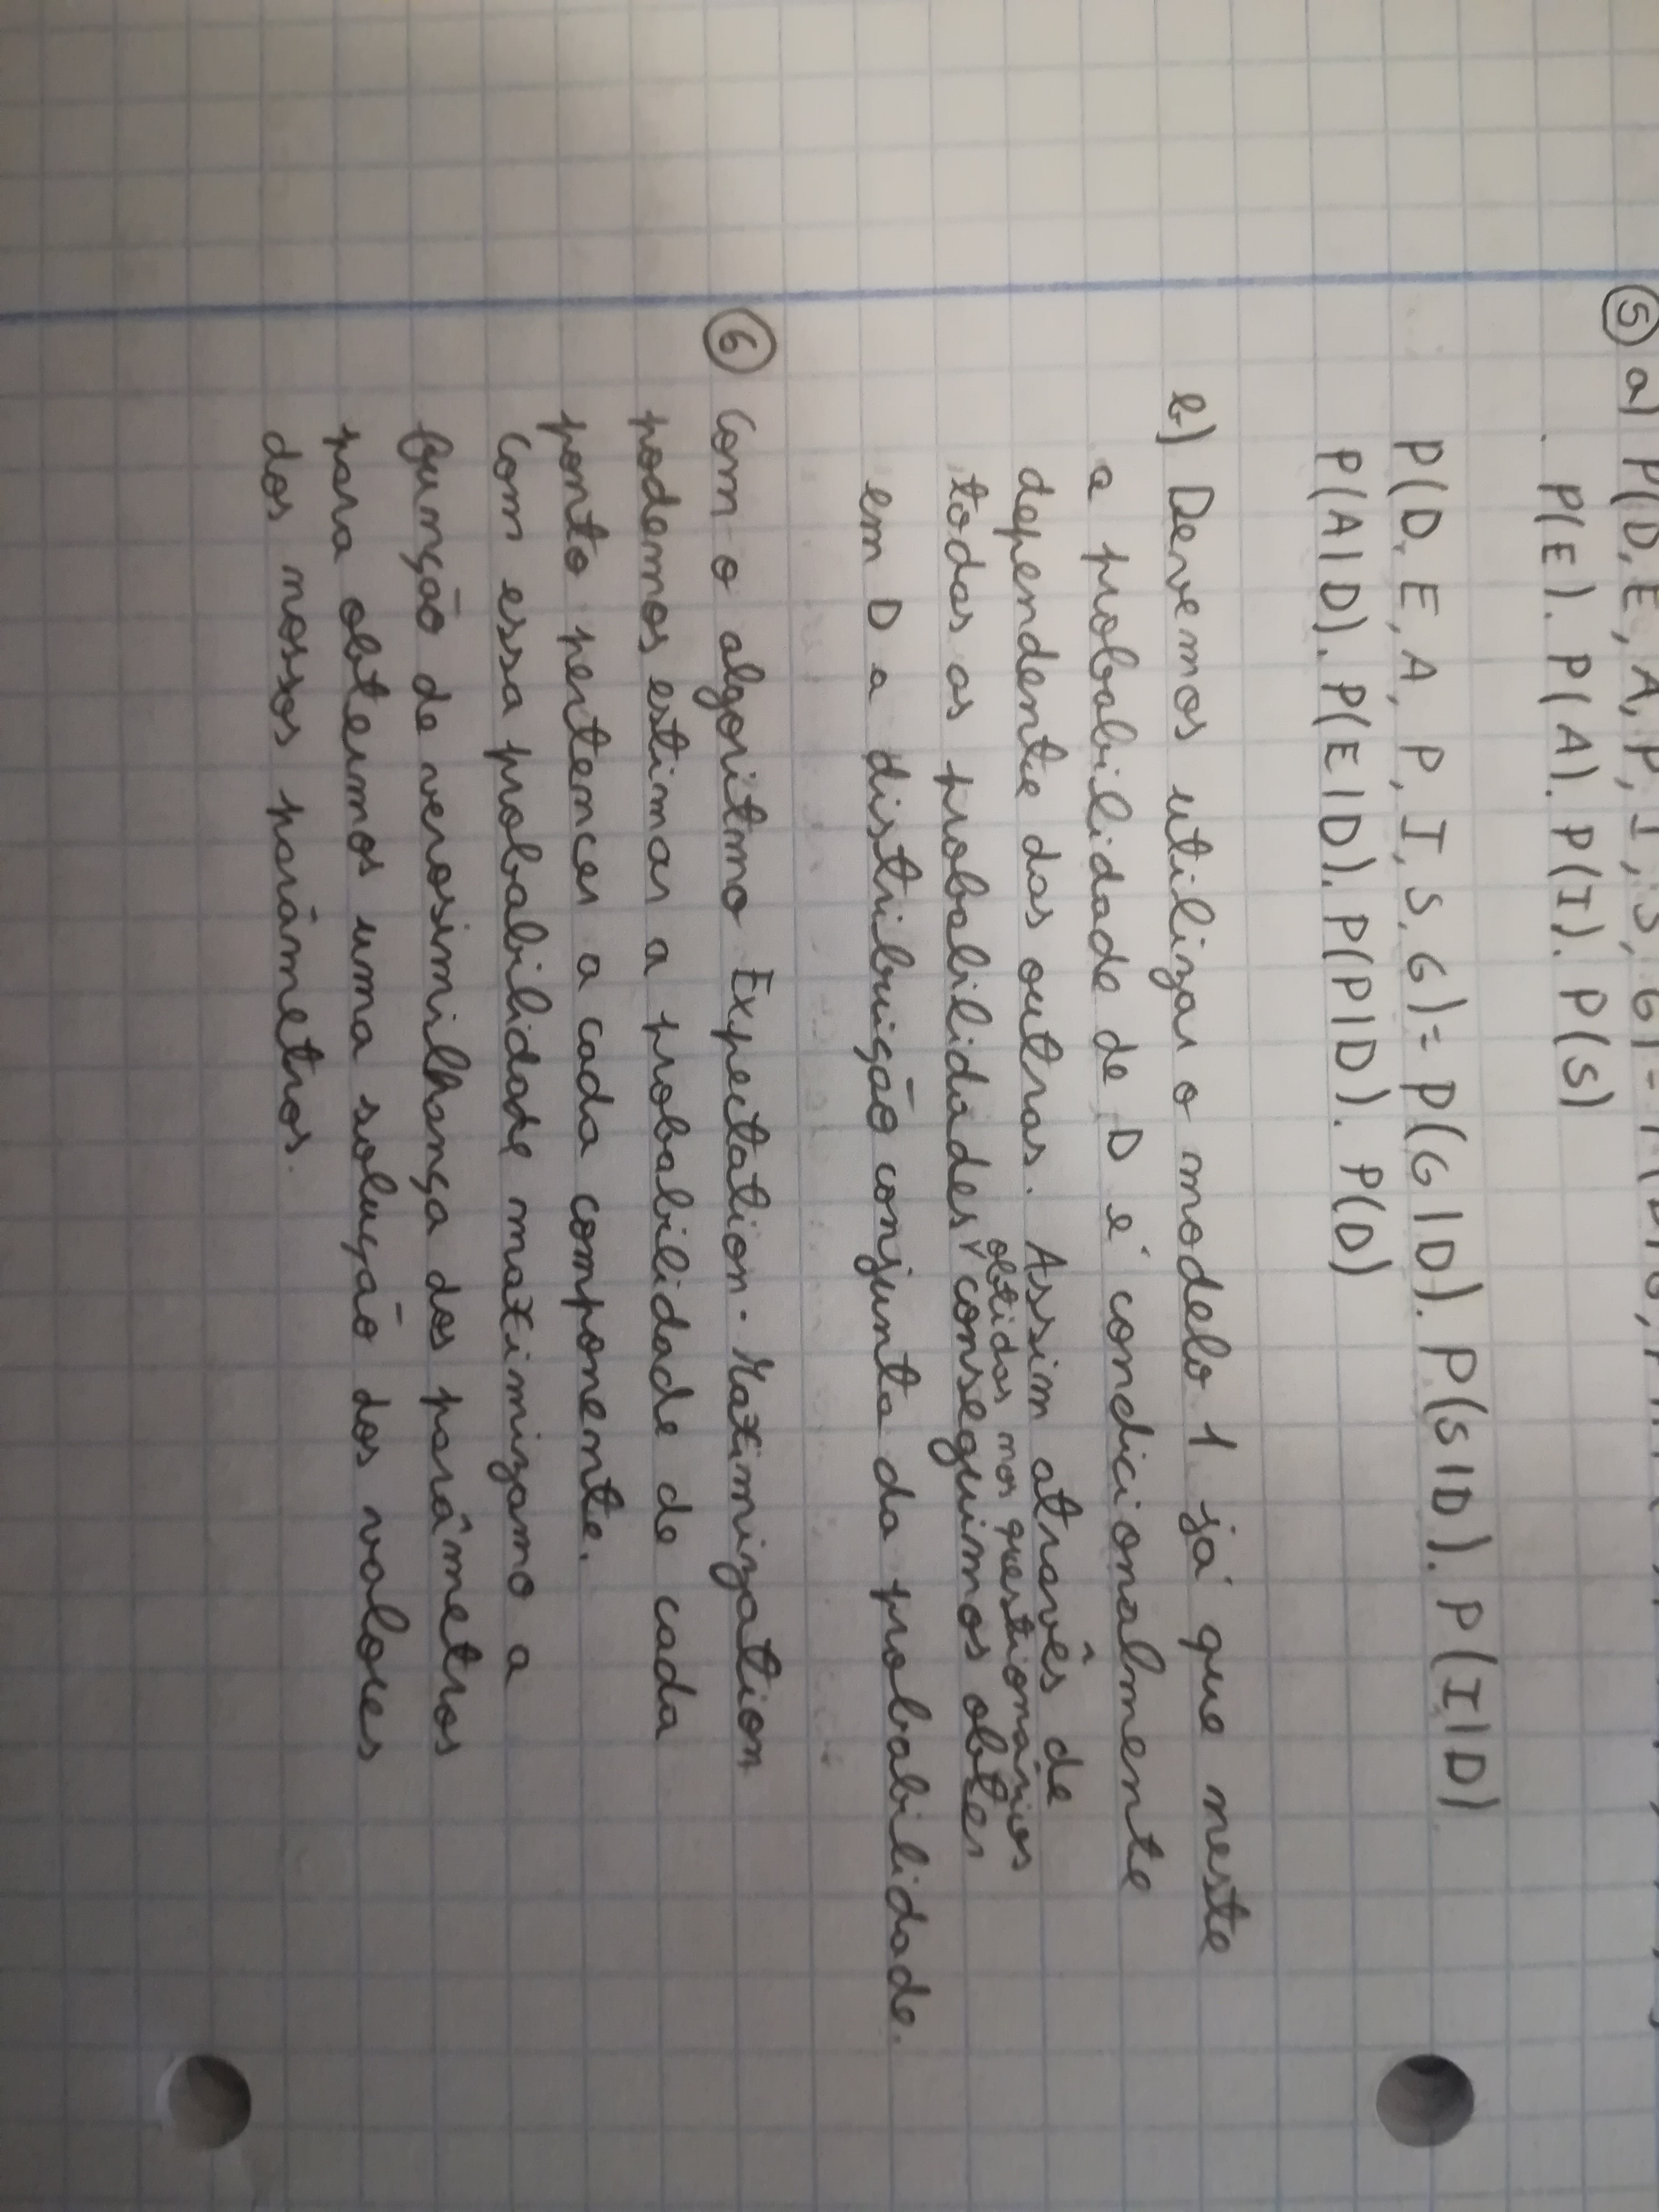 ⑤ a) P(D, E, A, P, I, S, G) =
. P(E). P(A). P(I). P(S)
P(D, E, A, P, I, S, G) = P(G|D). P(S|D). P(I|D)
P(A|D). P(E|D). P(P|D). P(D)
b) Devemos utilizar o modelo 1 já que neste
a probabilidade de D é condicionalmente
dependente das outras. Assim atravês de
obtidas nos questionários
todas as probabilidades conseguimos obter
em D a distribuição conjunta da probabilidade.
⑥ Com o algoritmo Expectation-Maximization
podemos estimar a probabilidade de cada
ponto pertencer a cada componente.
Com essa probabilidade maximizamo a
função de verosimilhança dos parâmetros
para obtermos uma solução dos valores
dos nossos parâmetros.